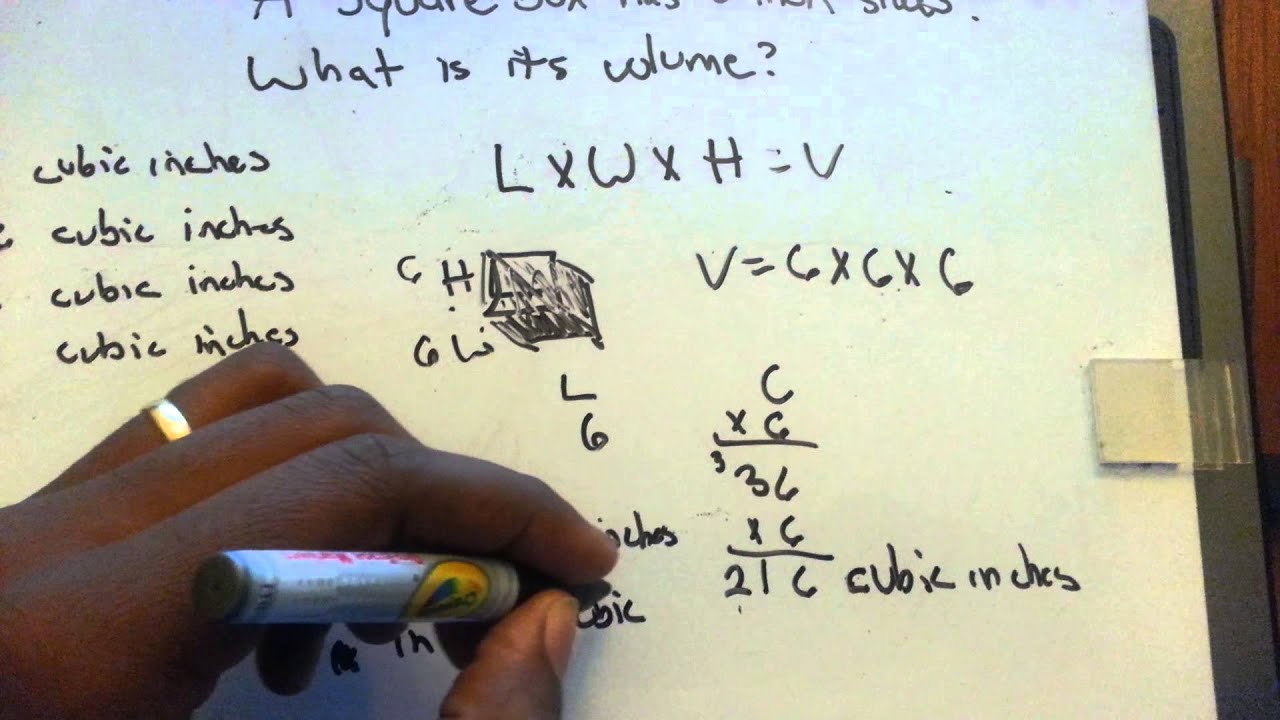 A square box has 6 inch sides.
What is its volume?
cubic inches
cubic inches
cubic inches
cubic inches
L x W x H = V
6 H
6 W
L
6
V = 6 x 6 x 6
6
x 6
3
36
x 6
216 cubic inches
inches
cubic
in